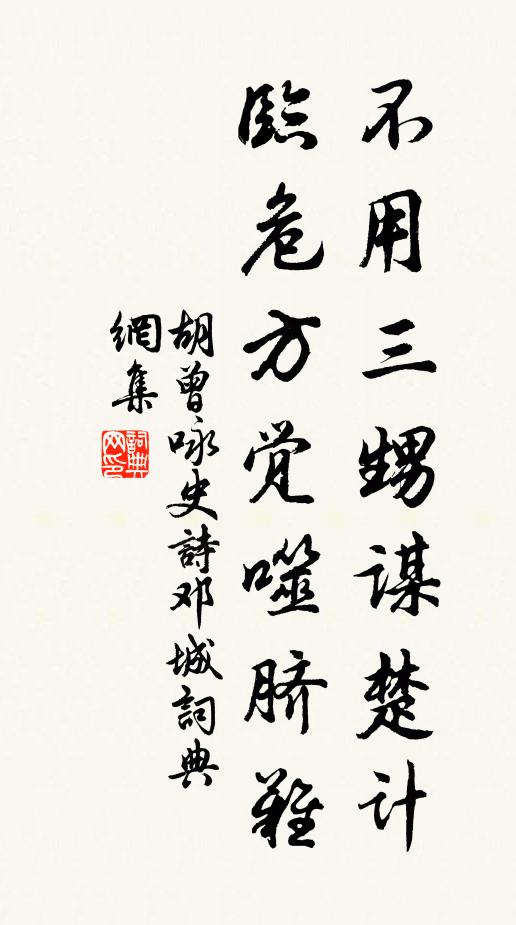 不用三甥謀楚计
臨危方覚噬脐難
胡曾咏史詩邓城詞典
網集
詞典
网印